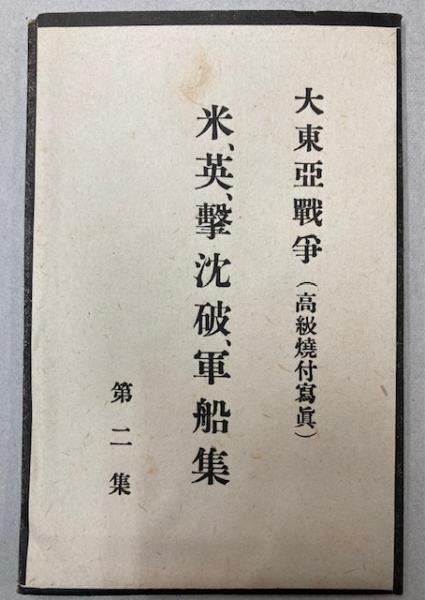 大東亞戰爭(高級燒付寫眞)
米、英、擊沈破、軍船集
第二集